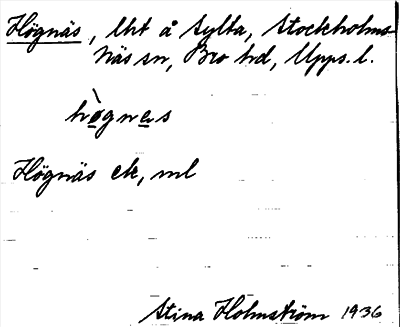 Högnäs, lht å Sylta, Stockholms-
Näs sn, Bro hd, Upps. l.
hø̀gnɛs
Högnäs ek, ml
Stina Holmström 1936